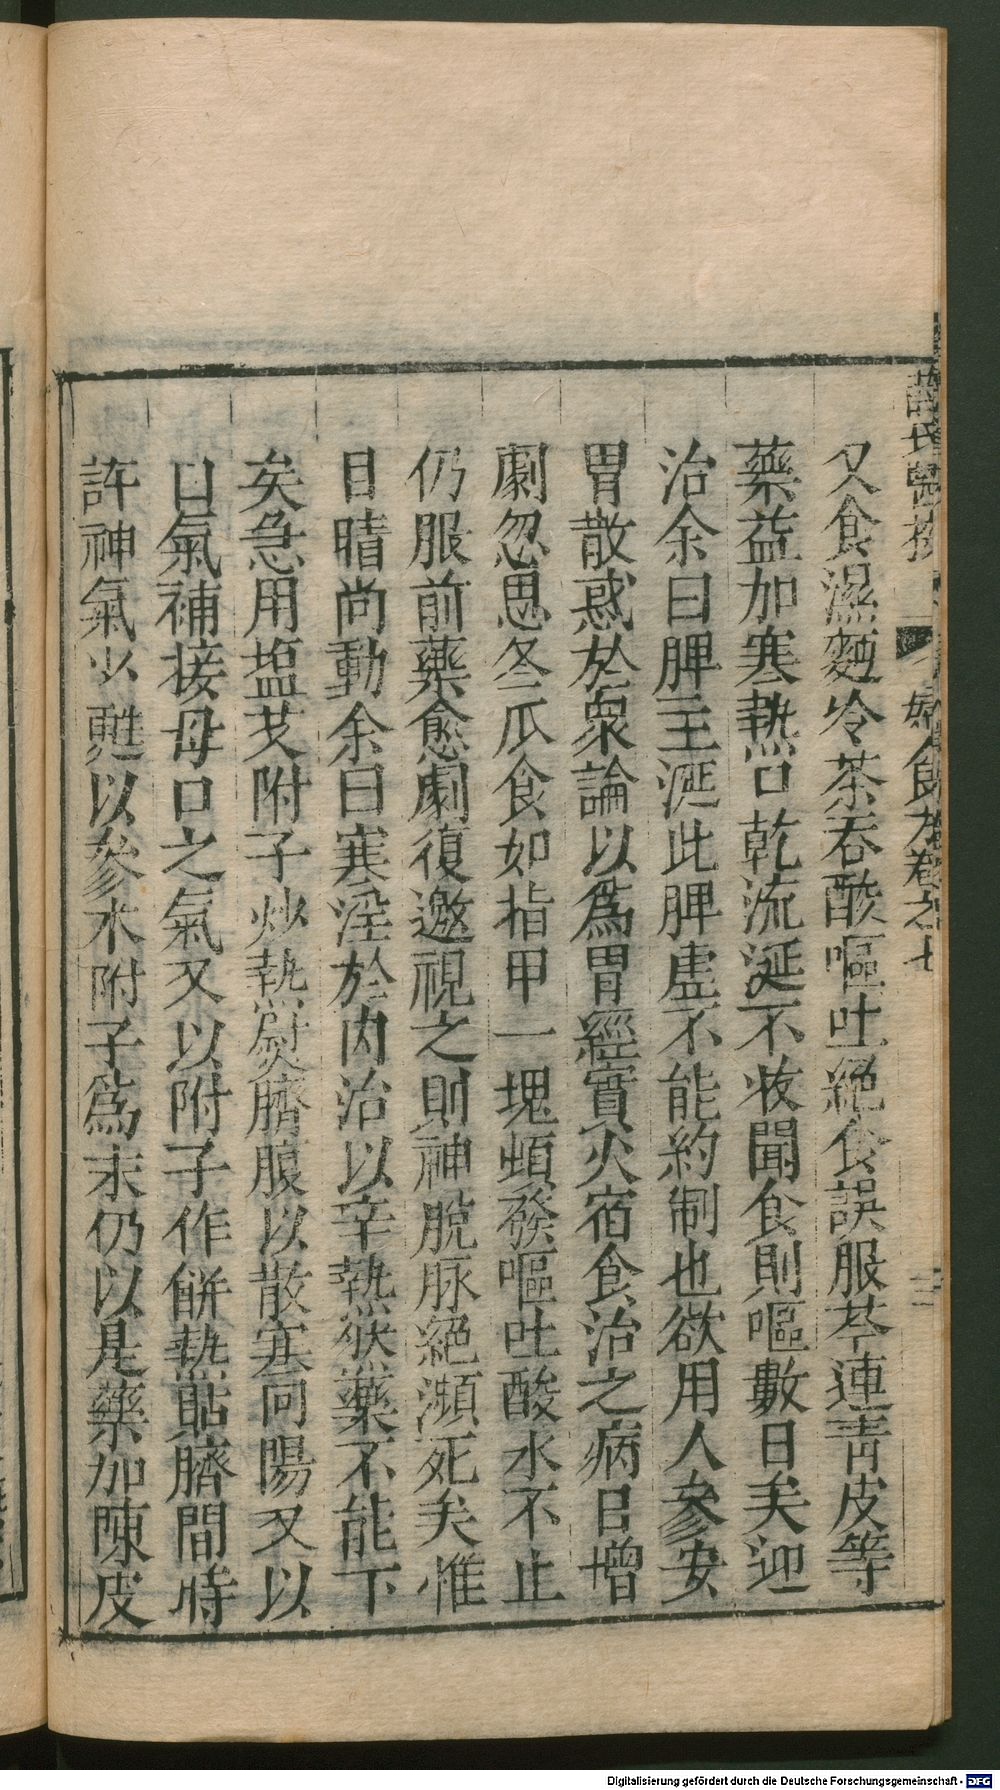 又食濕麵冷茶吞酸嘔吐絕食誤服芩連靑皮等
藥益加寒熱口乾流涎不收聞食則嘔數日矣迎
治余曰脾主涎此脾虛不能約制也欲用人參安
胃散惑於衆論以爲胃經實火宿食治之病日增
劇忽思冬瓜食如指甲一塊頓發嘔吐酸水不止
仍服前藥愈劇復邀視之則神脫脉絕瀕死矣惟
目睛尚動余曰寒淫於內治以辛熱然藥不能下
矣急用塩艾附子炒熱熨臍腹以散寒囘陽又以
口氣補接母口之氣又以附子作餠熱貼臍間時
許神氣少甦以參朮附子爲末仍以是藥加陳皮
食方卷之七
Digitalisierung gefördert durch die Deutsche Forschungsgemeinschaft - DFG